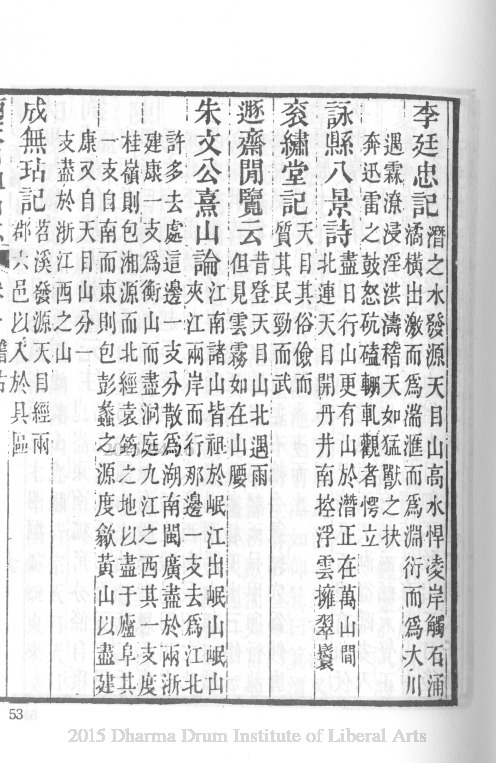 李廷忠記 潛之水發源天目山高水悍凌岸觸石涌
潏橫出激而爲湍滙而爲淵衍而爲大川
遇霖潦浸淫洪濤稽天如猛獸之狀
奔迅雷之鼓怒砊磕輣軋觀者愕立
詠縣八景詩 盡日行山更有山於潛正在萬山間
北連天目開丹井南控浮雲擁翠鬟
衮繡堂記 天目其俗儉而
質其民勁而武
遯齋閒覽云 昔登天目山北遇雨
但見雲霧如在山腰
朱文公熹山論 江南諸山皆祖於岷江出岷山岷山
夾江兩岸而行那邊一支去爲江北
許多去處這邊一支分散爲湖南閩廣盡於兩浙
建康一支爲衡山而盡洞庭九江之西其一支度
桂嶺則包湘源而北經袁筠之地以盡于廬阜其
一支自南而東則包彭蠡之源度歙黃山以盡建
康又自天目山分一
支盡於浙江西之山
成無玷記 苕溪發源天目經兩
郡六邑以入於具區
53
2015 Dharma Drum Institute of Liberal Arts